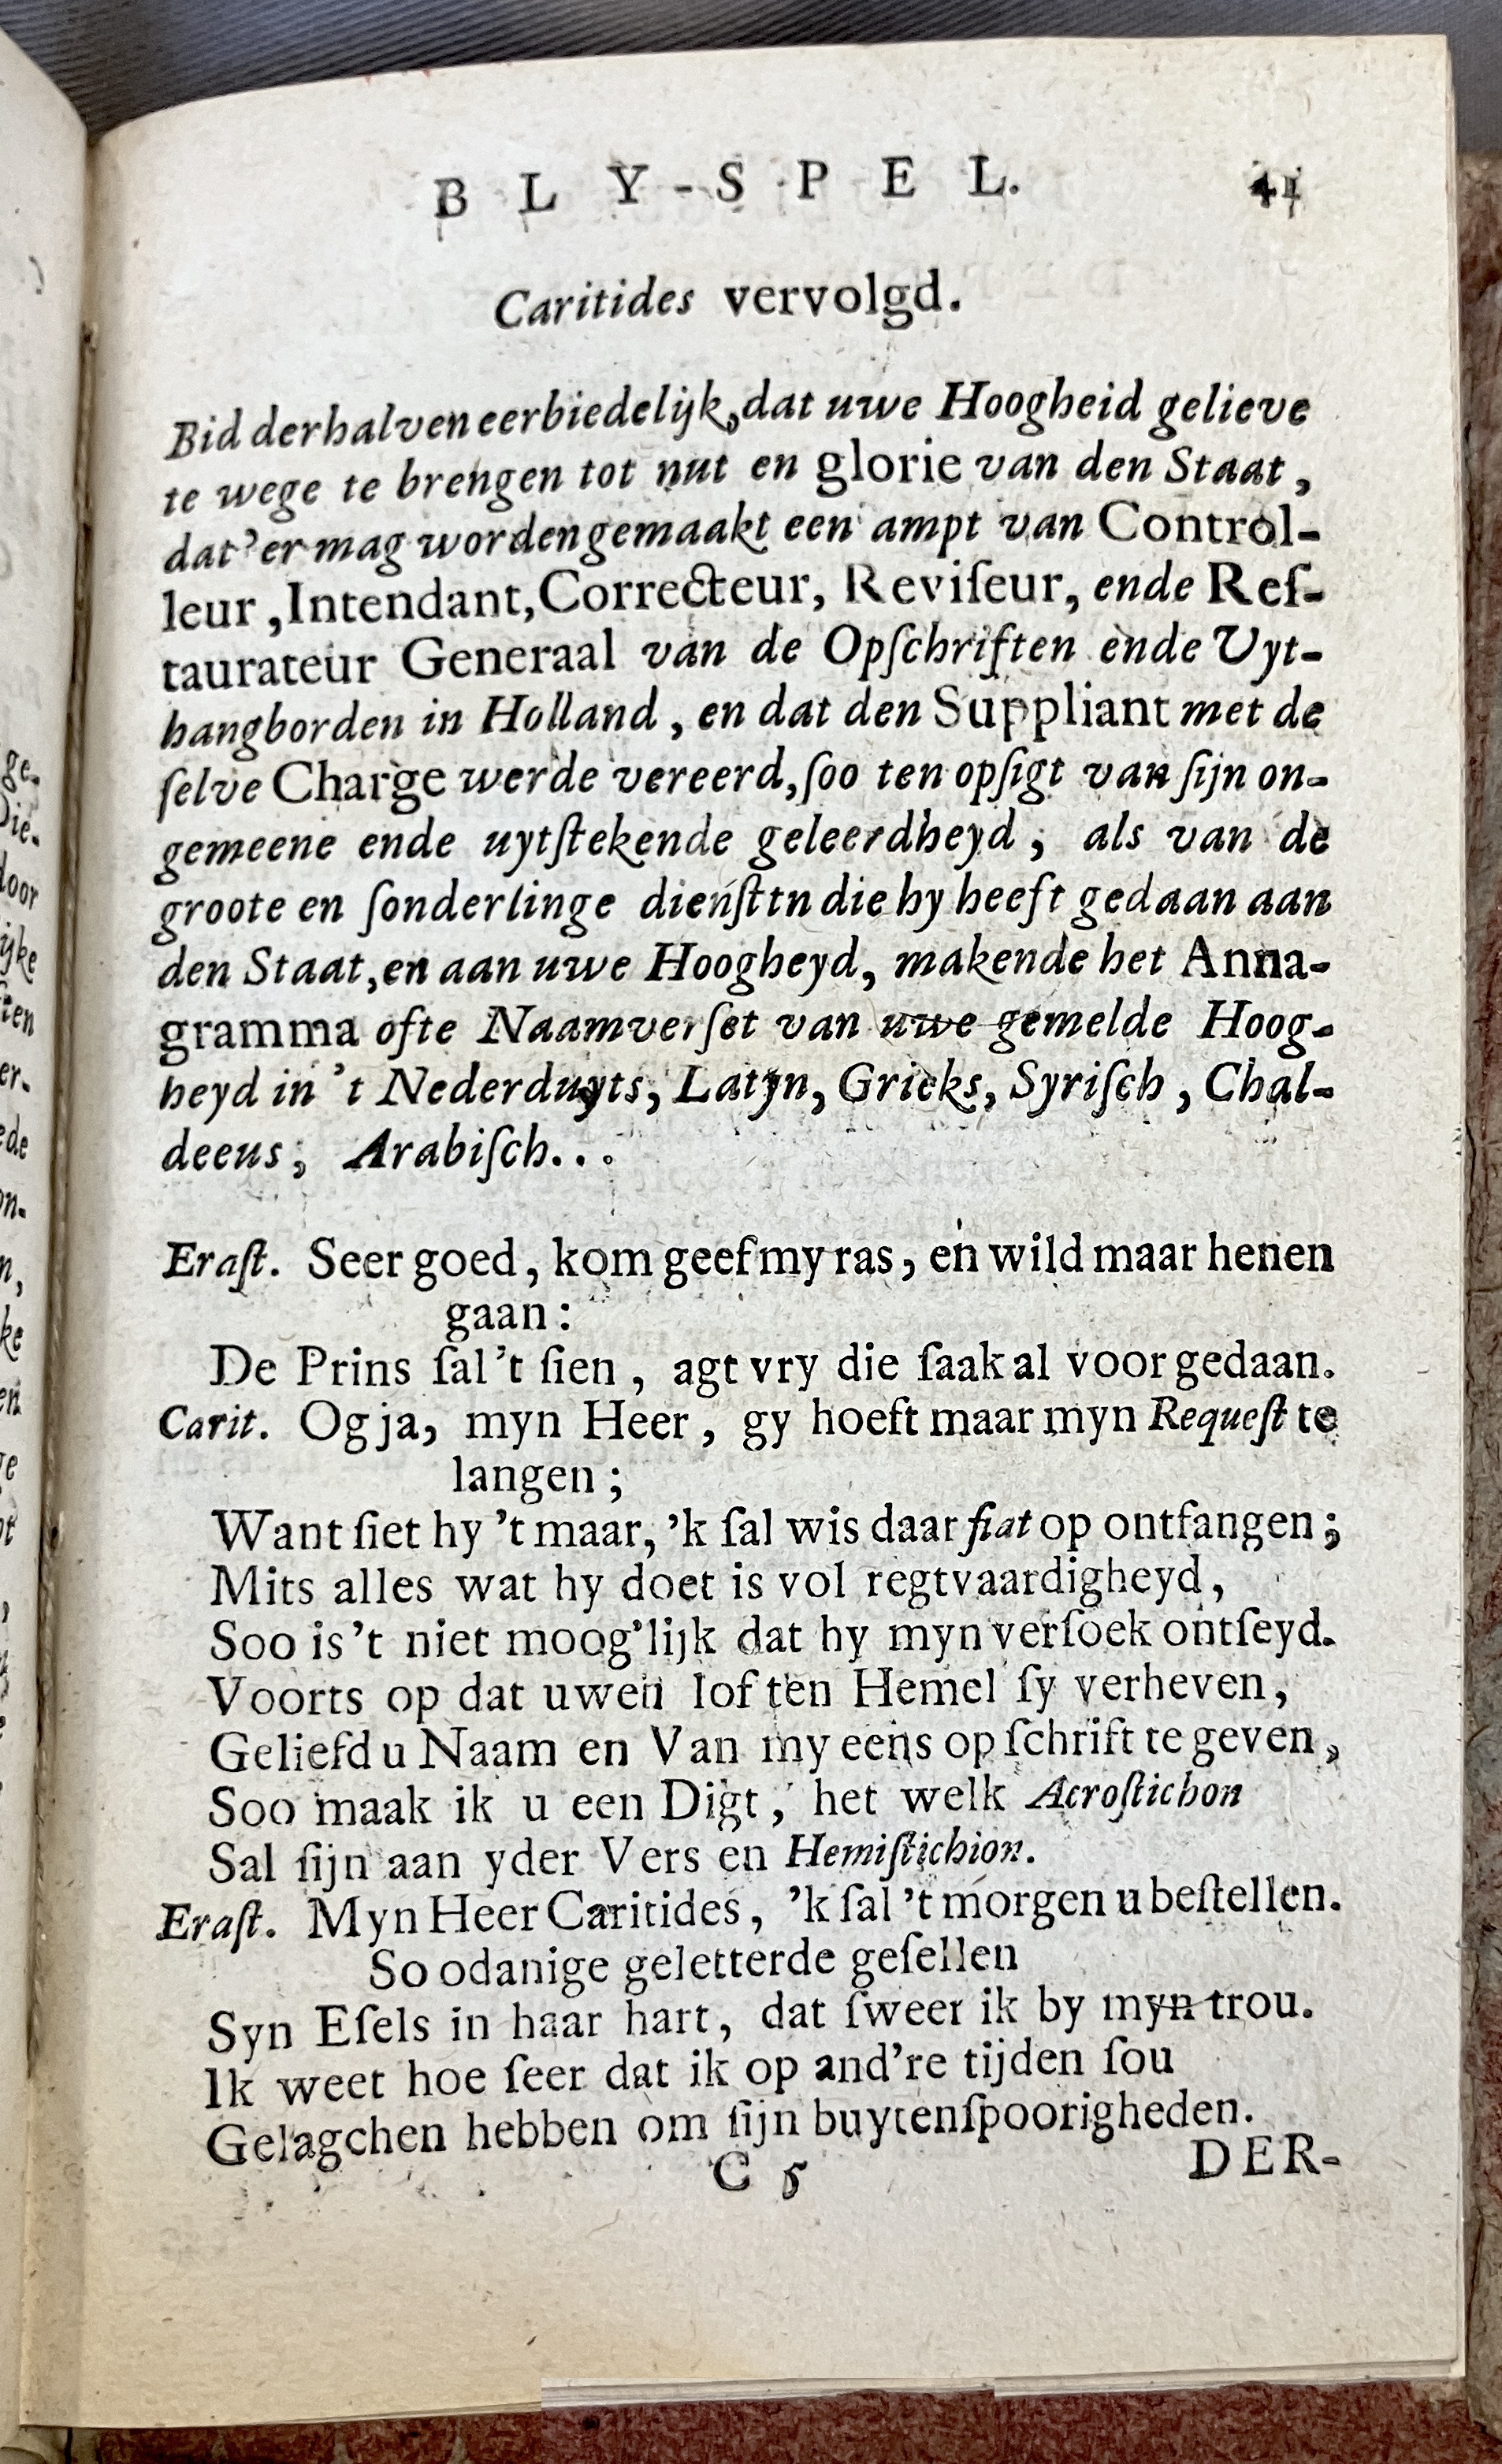 BLY-SPEL. 41
Caritides vervolgd.
Bid derhalven eerbiedelijk, dat uwe Hoogheid gelieve
te wege te brengen tot nut en glorie van den Staat,
dat'er mag worden gemaakt een ampt van Control-
leur, Intendant, Correcteur, Reviſeur, ende Reſ-
taurateur Generaal van de Opſchriften ende Uyt-
hangborden in Holland, en dat den Suppliant met de
ſelve Charge werde vereerd, ſoo ten opſigt van ſijn on-
gemeene ende uytſtekende geleerdheyd, als van de
groote en ſonderlinge dienſttn die hy heeft gedaan aan
den Staat, en aan uwe Hoogheyd, makende het Anna-
gramma ofte Naamverſet van uwe gemelde Hoog-
heyd in 't Nederduyts, Latyn, Grieks, Syriſch, Chal-
deeus, Arabiſch...
Eraſt. Seer goed, kom geef my ras, en wild maar henen
gaan:
De Prins ſal 't ſien, agt vry die ſaak al voor gedaan.
Carit. Og ja, myn Heer, gy hoeft maar myn Requeſt te
langen;
Want ſiet hy 't maar, 'k ſal wis daar fiat op ontfangen;
Mits alles wat hy doet is vol regtvaardigheyd,
Soo is 't niet moog'lijk dat hy myn verſoek ontſeyd.
Voorts op dat uwen lof ten Hemel ſy verheven,
Geliefd u Naam en Van my eens op ſchrift te geven,
Soo maak ik u een Digt, het welk Acroſtichon
Sal ſijn aan yder Vers en Hemiſtichion.
Eraſt. Myn Heer Caritides, 'k ſal 't morgen u beſtellen.
Soodanige geletterde geſellen
Syn Eſels in haar hart, dat ſweer ik by myn trou.
Ik weet hoe ſeer dat ik op and're tijden ſou
Gelagchen hebben om ſijn buytenſpoorigheden.
C 5 DER-